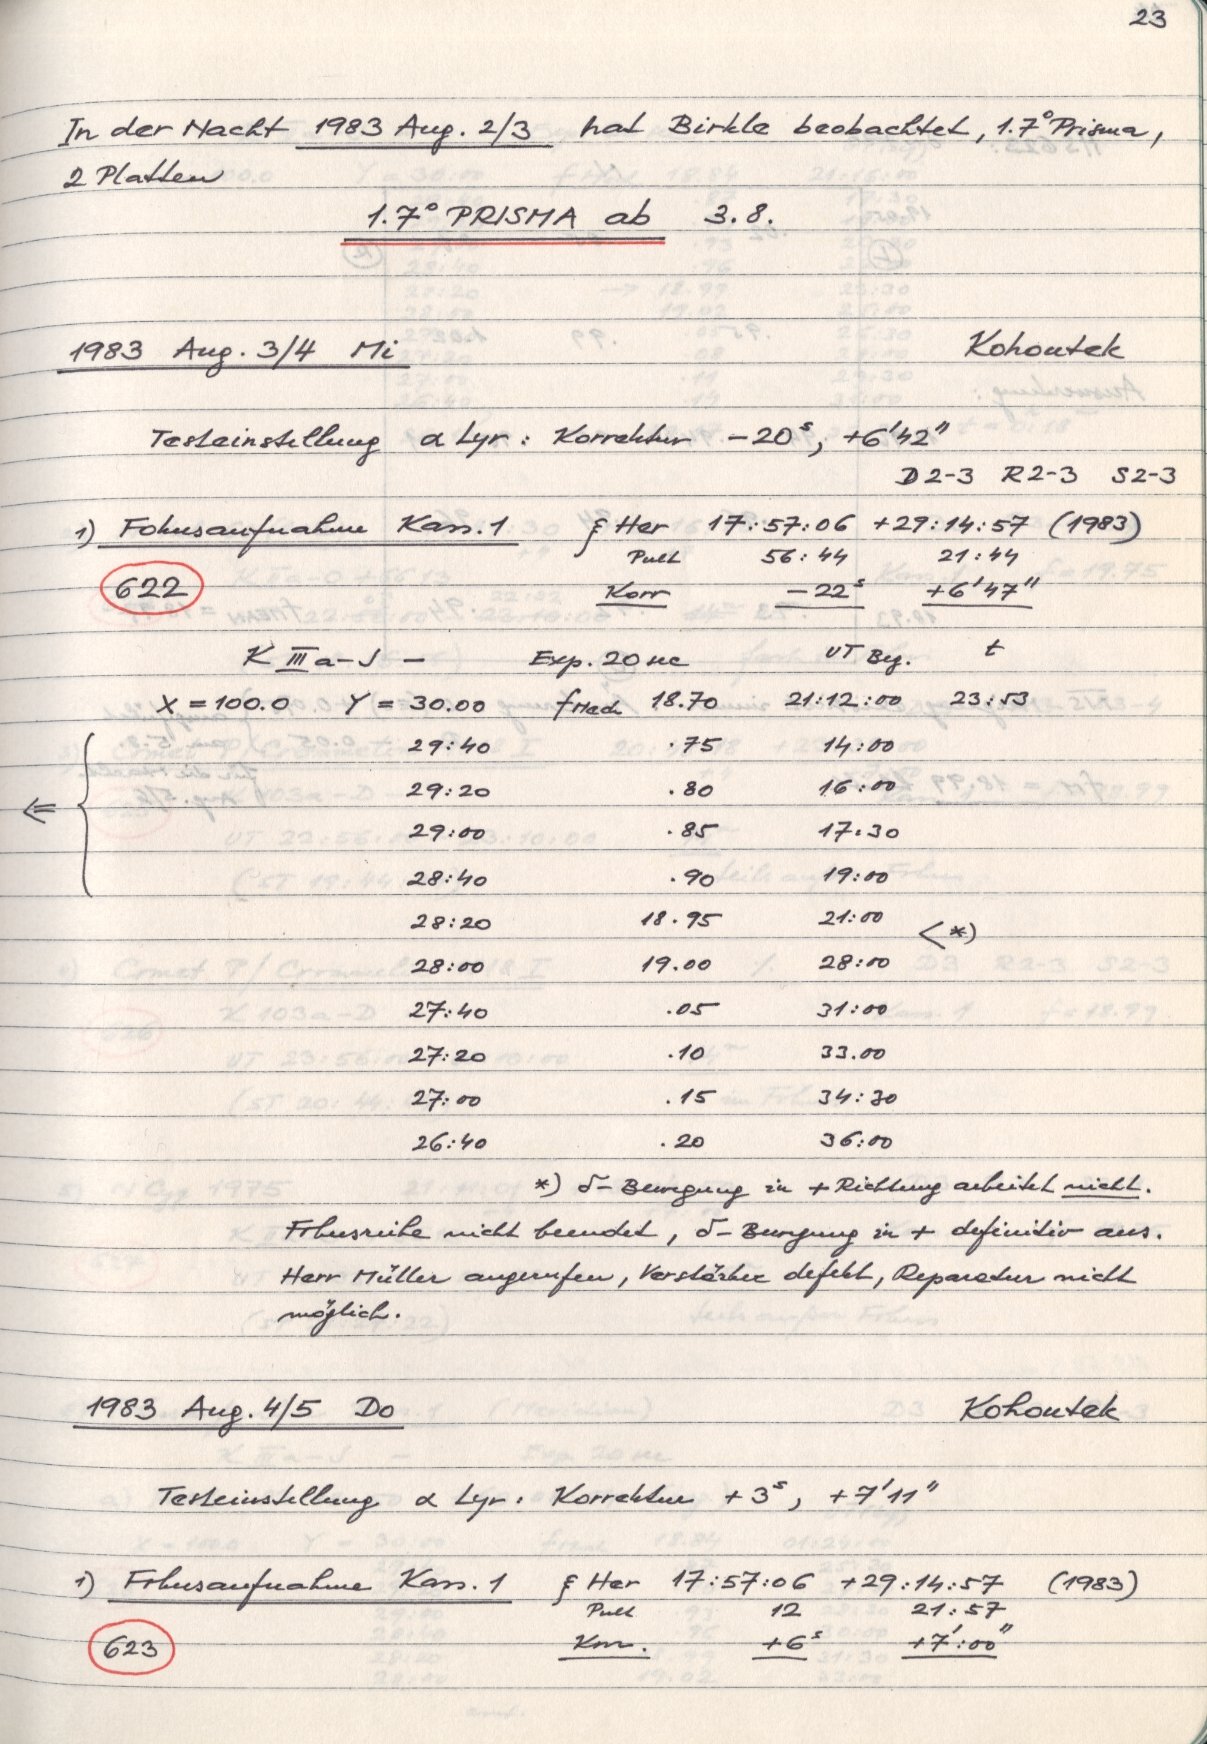 23
In der Nacht 1983 Aug. 2/3 hat Birkle beobachtet, 1.7° Prisma,
2 Platten
1.7° PRISMA ab 3.8.
1983 Aug. 3/4 Mi Kohoutek
Testeinstellung α Lyr: Korrektur -20ˢ, +6'42"
D2-3 R2-3 S2-3
1) Fokusaufnahme Kass. 1 ξ Her 17:57:06 +29:14:57 (1983)
Pult 56:44 21:44
622 Korr -22ˢ +6'47"
K IIIa-J - Exp. 20 sec UT Beg. t
X = 100.0 Y = 30.00 fMech 18.70 21:12:00 23:53
29:40 .75 14:00
⇐ { 29:20 .80 16:00
29:00 .85 17:30
28:40 .90 19:00
28:20 18.95 21:00
< *)
28:00 19.00 28:00
27:40 .05 31:00
27:20 .10 33.00
27:00 .15 34:30
26:40 .20 36:00
*) δ-Bewegung in + Richtung arbeitet nicht.
Fokusreihe nicht beendet, δ-Bewegung in + definitiv aus.
Herr Müller angerufen, Verstärker defekt, Reparatur nicht
möglich.
1983 Aug. 4/5 Do Kohoutek
Testeinstellung α Lyr: Korrektur +3ˢ, +7'11"
1) Fokusaufnahme Kass. 1 ξ Her 17:57:06 +29:14:57 (1983)
Pult 12 21:57
623 Korr. +6ˢ +7':00"